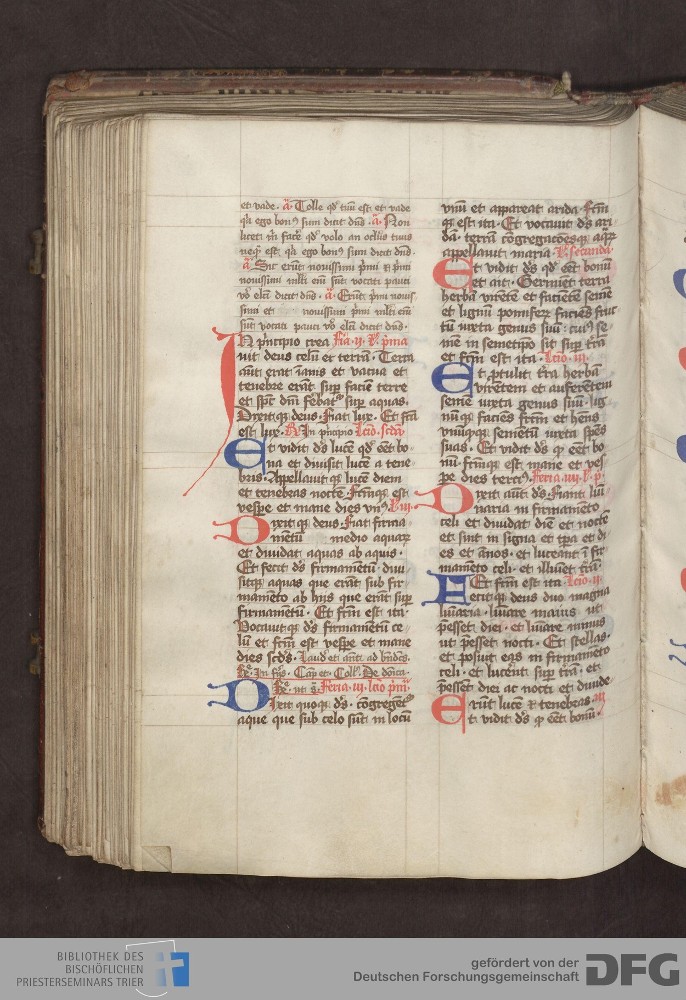 et vade. a. Tolle qd tuū est et vade
qā ego bonꝰ sum dicit dn̄s. a. Non
licet m̄ facē qd volo an oclus tuus
neqꝫ est, qā ego bonꝰ sum dicit dn̄s.
a. Sic erūt nouissimi p̄mi et p̄mi
nouissimi mlti em̄ sūt vocati pauci
v̄o elc̄i dicit dn̄s. a. Erūt p̄mi nouis
simi et nouissimi p̄mi mlti em̄
sūt vocati pauci v̄o elc̄i dicit dn̄s.
In p̄ncipio crea Fīa .ij. L. p̄ma
uit deus celū et terrā. Terra
aūt erat īanis et vacua et
tenebre erāt sup̄ faciē terre
et sp̄c dn̄i febatꝰ sup̄ aquas.
Dixitqꝫ deus. Fiat lux. Et fc̄ā
est lux. R. In p̄ncipio Lc̄io. sc̄dā
Et vidit ds̄ lucē qd eēt bo
na et diuisit lucē a tene
bris. Appellauit qꝫ lucē diem
et tenebras noctē. Fc̄m̄qꝫ est
vesp̄e et mane dies vnꝰ. L. iij.
Dixit qꝫ deus. Fiat firma
mentū medio aquarꝫ
et diuidat aquas ab aquis.
Et fecit ds̄ firmamentū. diui
sitqꝫ aquas que erāt sub fir
mamēto ab hijs que erāt sup̄
firmamentū. Et fc̄m̄ est ita.
Vocauitqꝫ ds̄ firmamentū ce
lū et fc̄m̄ est vesp̄e et mane
dies sc̄ds. Laud̄ et an̄t. ad bn̄dc̄s.
R. In sup̄s. Cap. et Coll. De dōica.
R. ut s. Feria .iij. lc̄io p̄m̄.
Dixit quoqꝫ ds̄. cōgregēt
aque que sub celo sūt in locū
vnū et appareat arida. fc̄m̄
qꝫ est ita. Et vocauit ds̄ ari
dā. terrā cōgregacōesqꝫ aqr̄ꝫ
appellauit maria. L. secunda.
Et vidit ds̄ qd eēt bonū
et ait. Germinet terra
herbā virētē et faciētē semē
et lignū pomiferꝫ faciēs fruc
tū iuxta genus suū. cuiꝰ se
mē in semetip̄o sit sup̄ trā
et fc̄m̄ est ita. Lc̄io. iij.
Et p̄tulit tr̄a herbā
virentem et auferētem
semē iuxta genus suū. lig
nū qꝫ faciēs frc̄m̄ et hēns
vnūqꝫqꝫ semētū iuxta sp̄ēs
suas. Et vidit ds̄ qꝫ eēt bo
nū. fc̄m̄qꝫ est mane et ves
p̄e dies terciꝰ. Feria .iiij. L. p̄.
Dixit aūt ds̄. Fiant lu
naria in firmamēto
celi. et diuidāt diē et noctē
et sint in signa et tp̄a et di
es et ānos. et luceant ī fir
mamēto celi. et illuīet trā.
Et fc̄m̄ est ita Lc̄io .ij.
Fecitqꝫ deus duo magna
lūiaria. lūiare maius ut
p̄esset diei. et lūiare minus
ut p̄esset nocti. Et stellas.
et posuit eas in firmamēto
celi. et lucerēt sup̄ trā. et
p̄essēt diei ac nocti et diuide
rēt lucē et tenebras. iij
Et vidit ds̄ qꝫ eēt bonū.
BIBLIOTHEK DES
BISCHÖFLICHEN
PRIESTERSEMINARS TRIER
gefördert von der
Deutschen Forschungsgemeinschaft
DFG